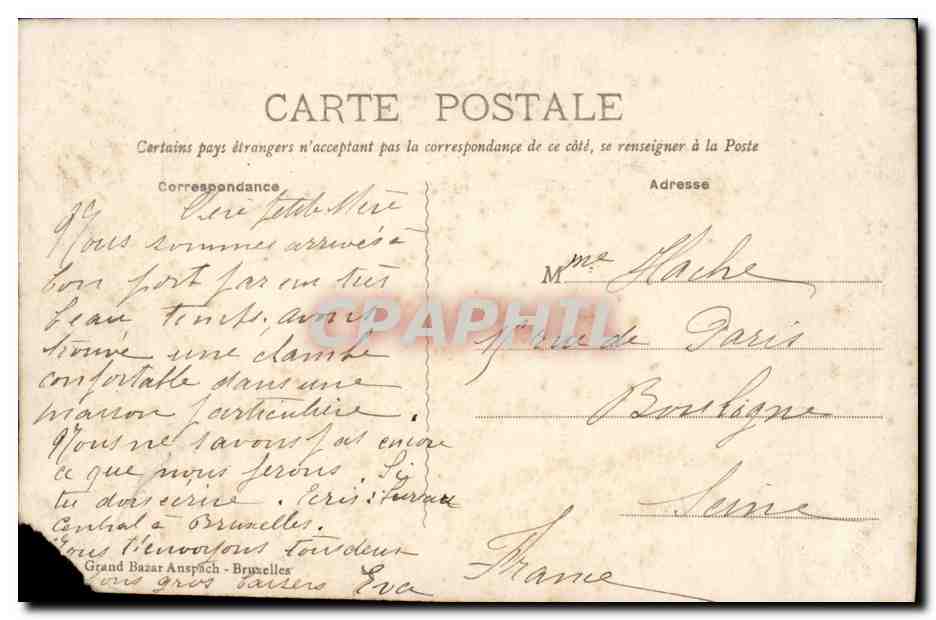 CARTE POSTALE
Certains pays étrangers n'acceptent pas la correspondance de ce côté, se renseigner à la Poste
Correspondance
Chère petite Mère
Nous sommes arrivés à
bon port par un très
beau temps, avons
trouvé une chambre
confortable dans une
maison particulière.
Nous ne savons pas encore
ce que nous ferons. Si
tu dois écrire. Ecris: bureau
central à Bruxelles.
Nous t'envoyons tous deux
Grand Bazar Anspach - Bruxelles
gros baisers Eva
Adresse
Mme Hache
rue de Paris
Boulogne
Seine
France
CPAPHIL